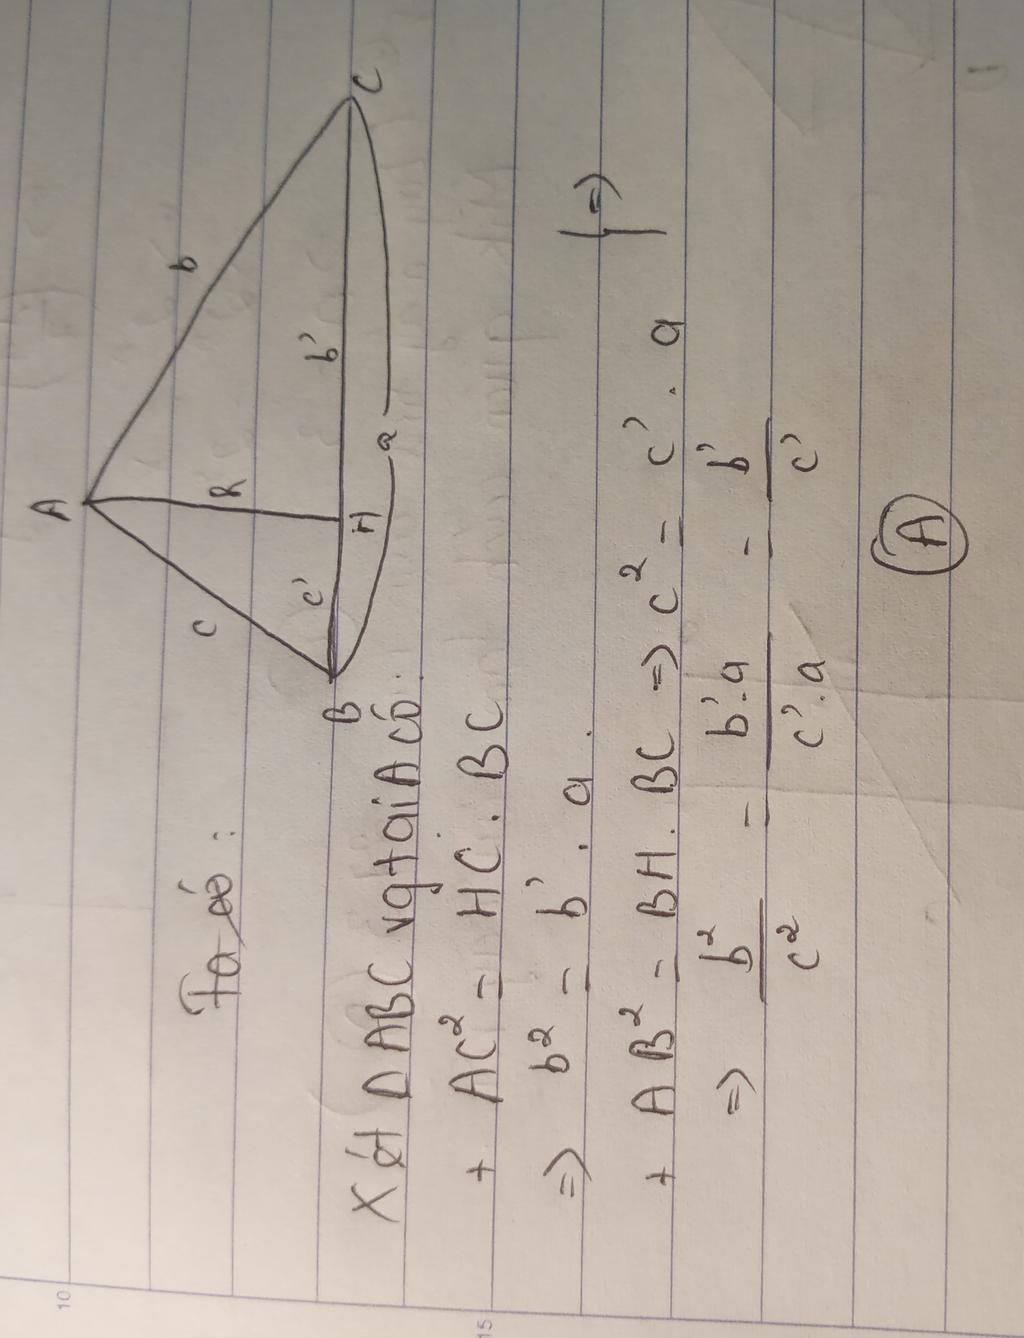 A
c
b
h
c'
b'
B
H
C
a
Ta có:
Xét ΔABC vg tại A có:
+ AC² = HC . BC
=> b² = b' . a .
+ AB² = BH . BC => c² = c' . a
=>
=> b²/c² = b'.a/c'.a = b'/c'
A
10
15